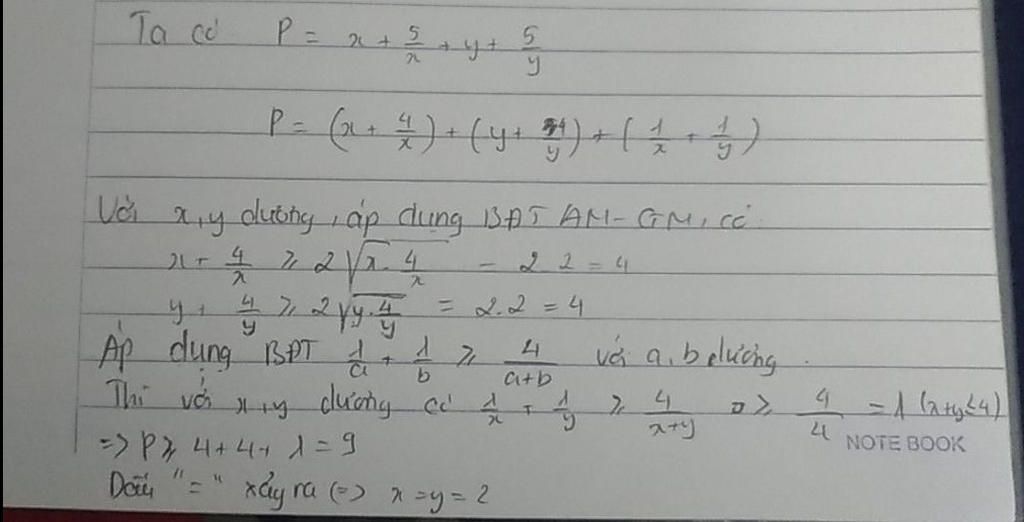 Ta có P = x + 5/x + y + 5/y
P = (x + 4/x) + (y + 4/y) + (1/x + 1/y)
Với x, y dương, áp dụng BĐT AM-GM, có
x + 4/x ≥ 2√(x . 4/x) = 2.2 = 4
y + 4/y ≥ 2√(y . 4/y) = 2.2 = 4
Áp dụng BĐT 1/a + 1/b ≥ 4/(a+b) với a, b dương.
Thì với x, y dương có 1/x + 1/y ≥ 4/(x+y) ≥ 4/4 = 1 (x+y≤4)
NOTE BOOK
=> P ≥ 4 + 4 + 1 = 9
Dấu "=" xảy ra (=> x = y = 2